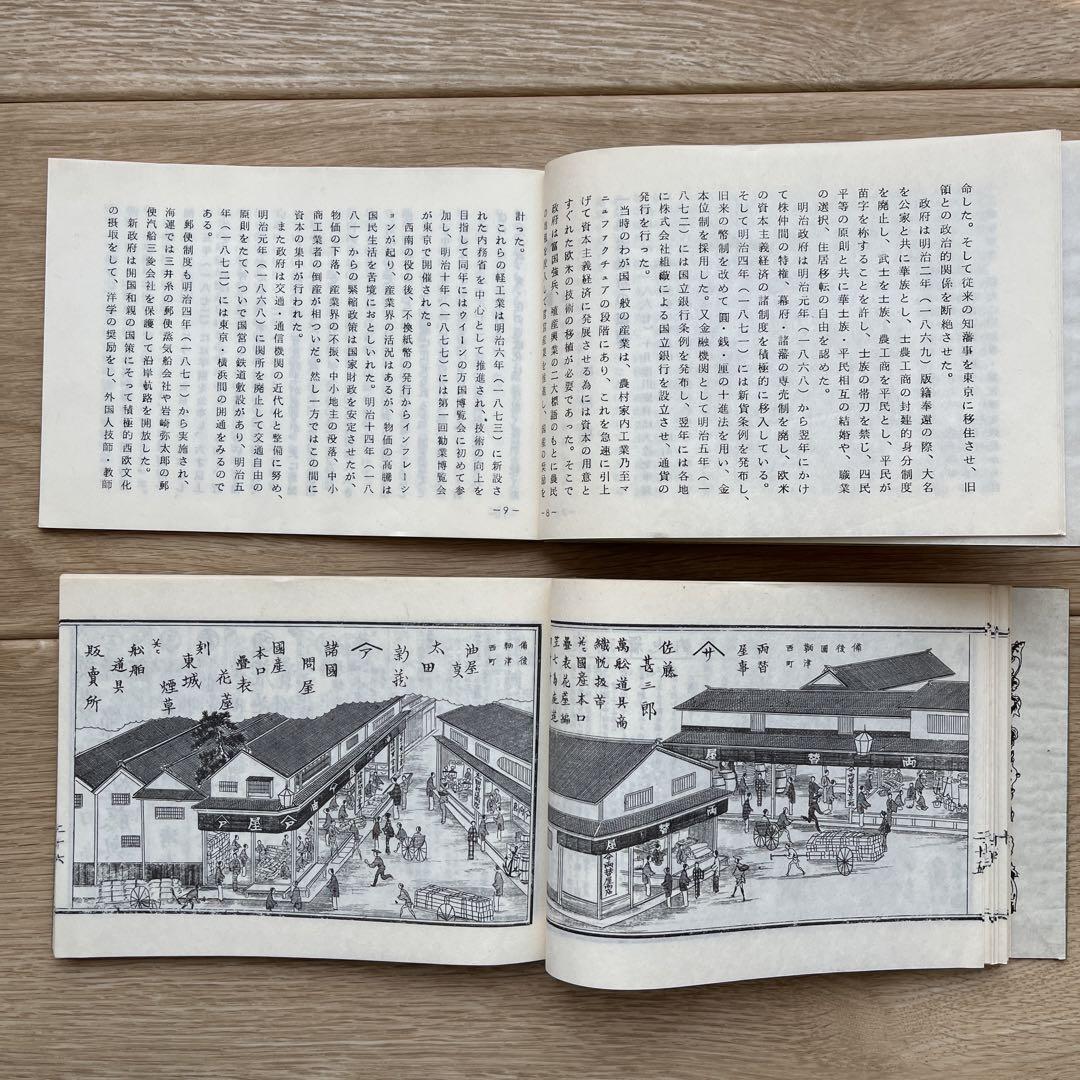 命した。そして従来の知藩事を東京に移住させ、旧
領との政治的関係を断絶させた。
政府は明治二年（一八六九）版籍奉還の際、大名
を公家と共に華族とし、士農工商の封建的身分制度
を廃止し、武士を士族、農工商を平民とし、平民が
苗字を称することを許し、士族の帯刀を禁じ、四民
平等の原則と共に華士族・平民相互の結婚や、職業
の選択、住居移転の自由を認めた。
明治政府は明治元年（一八六八）から翌年にかけ
て株仲間の特権、幕府・諸藩の専売制を廃し、欧米
の資本主義経済の諸制度を積極的に移入している。
そして明治四年（一八七一）には新貨条例を発布し、
旧来の幣制を改めて圓・銭・厘の十進法を用い、金
本位制を採用した。又金融機関として明治五年（一
八七二）には国立銀行条例を発布し、翌年には各地
に株式会社組織による国立銀行を設立させ、通貨の
発行を行った。
当時のわが国一般の産業は、農村家内工業乃至マ
ニュファクチュアの段階にあり、これを急速に引上
げて資本主義経済に発展させる為には資本の用意と
すぐれた欧米の技術の移植が必要であった。そこで
政府は富国強兵、殖産興業の二大標語のもとに農民
－8－
計った。
これらの軽工業は明治六年（一八七三）に新設さ
れた内務省を中心として推進され、技術の向上を
目指して同年にはウイーンの万国博覧会に初めて参
加し、明治十年（一八七七）には第一回勧業博覧会
が東京で開催された。
西南の役の後、不換紙幣の発行からインフレーシ
ョンが起り、産業界の活況はあるが、物価の高騰は
国民生活を苦境におとしいれた。明治十四年（一八
八一）からの緊縮政策は国家財政を安定させたが、
物価の下落、産業界の不振、中小地主の没落、中小
商工業者の倒産が相ついだ。然し一方ではこの間に
資本の集中が行われた。
また政府は交通・通信機関の近代化と整備に努め、
明治元年（一八六八）に関所を廃止して交通自由の
原則をたて、ついで国営の鉄道敷設があり、明治五
年（一八七二）には東京・横浜間の開通をみるので
ある。
郵便制度も明治四年（一八七一）から実施され、
海運では三井糸の郵便蒸気船会社や岩崎弥太郎の郵
便汽船三菱会社を保護して沿岸航路を開放した。
新政府は開国和親の国策にそって積極的西欧文化
の摂取をして、洋学の奨励をし、外国人技師・教師
－9－
備後國
鞆津
西町
両替
屋事
サ
佐藤
甚三郎
萬船道具商
織帆扱苧
國産本口
疊表花莚編
両替屋
二十五
備後
鞆津
西町
油屋
太田
新蔵
諸國
問屋
國産
本口
疊表
花莚
刻
東城
煙草
船舶
道具
販賣所
屋
二十六